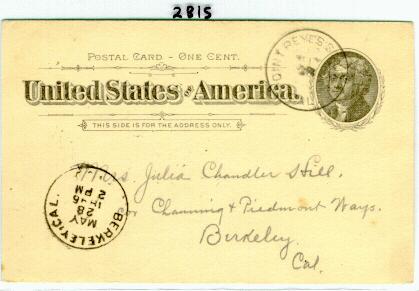 2815
POSTAL CARD - ONE CENT.
United States of America.
THIS SIDE IS FOR THE ADDRESS ONLY.
POINT REYES S
Mrs. Julia Chandler Hill.
Cor Channing & Piedmont Ways.
Berkeley.
Cal.
BERKELEY CAL.
MAY
28
PM